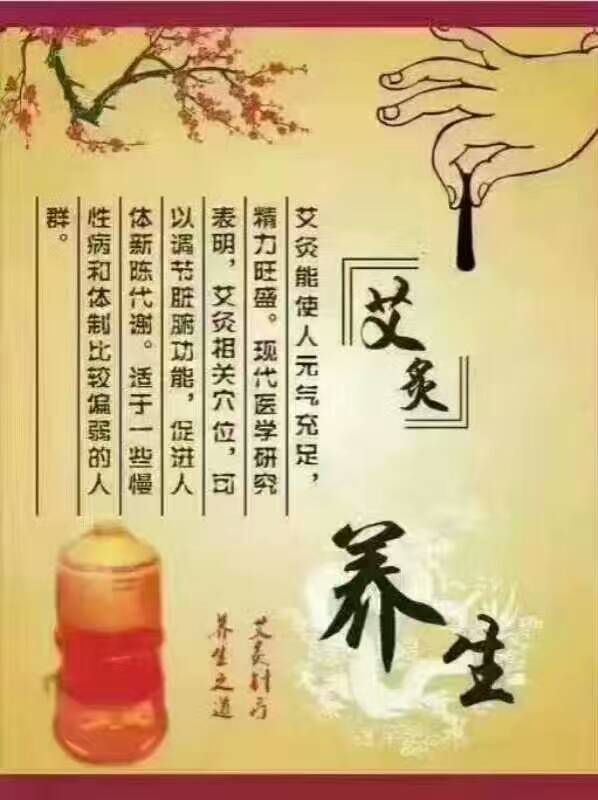 『艾灸』
养生
艾灸能使人元气充足，
精力旺盛。现代医学研究
表明，艾灸相关穴位，可
以调节脏腑功能，促进人
体新陈代谢。适于一些慢
性病和体制比较偏弱的人
群。
艾灸针疗
养生之道